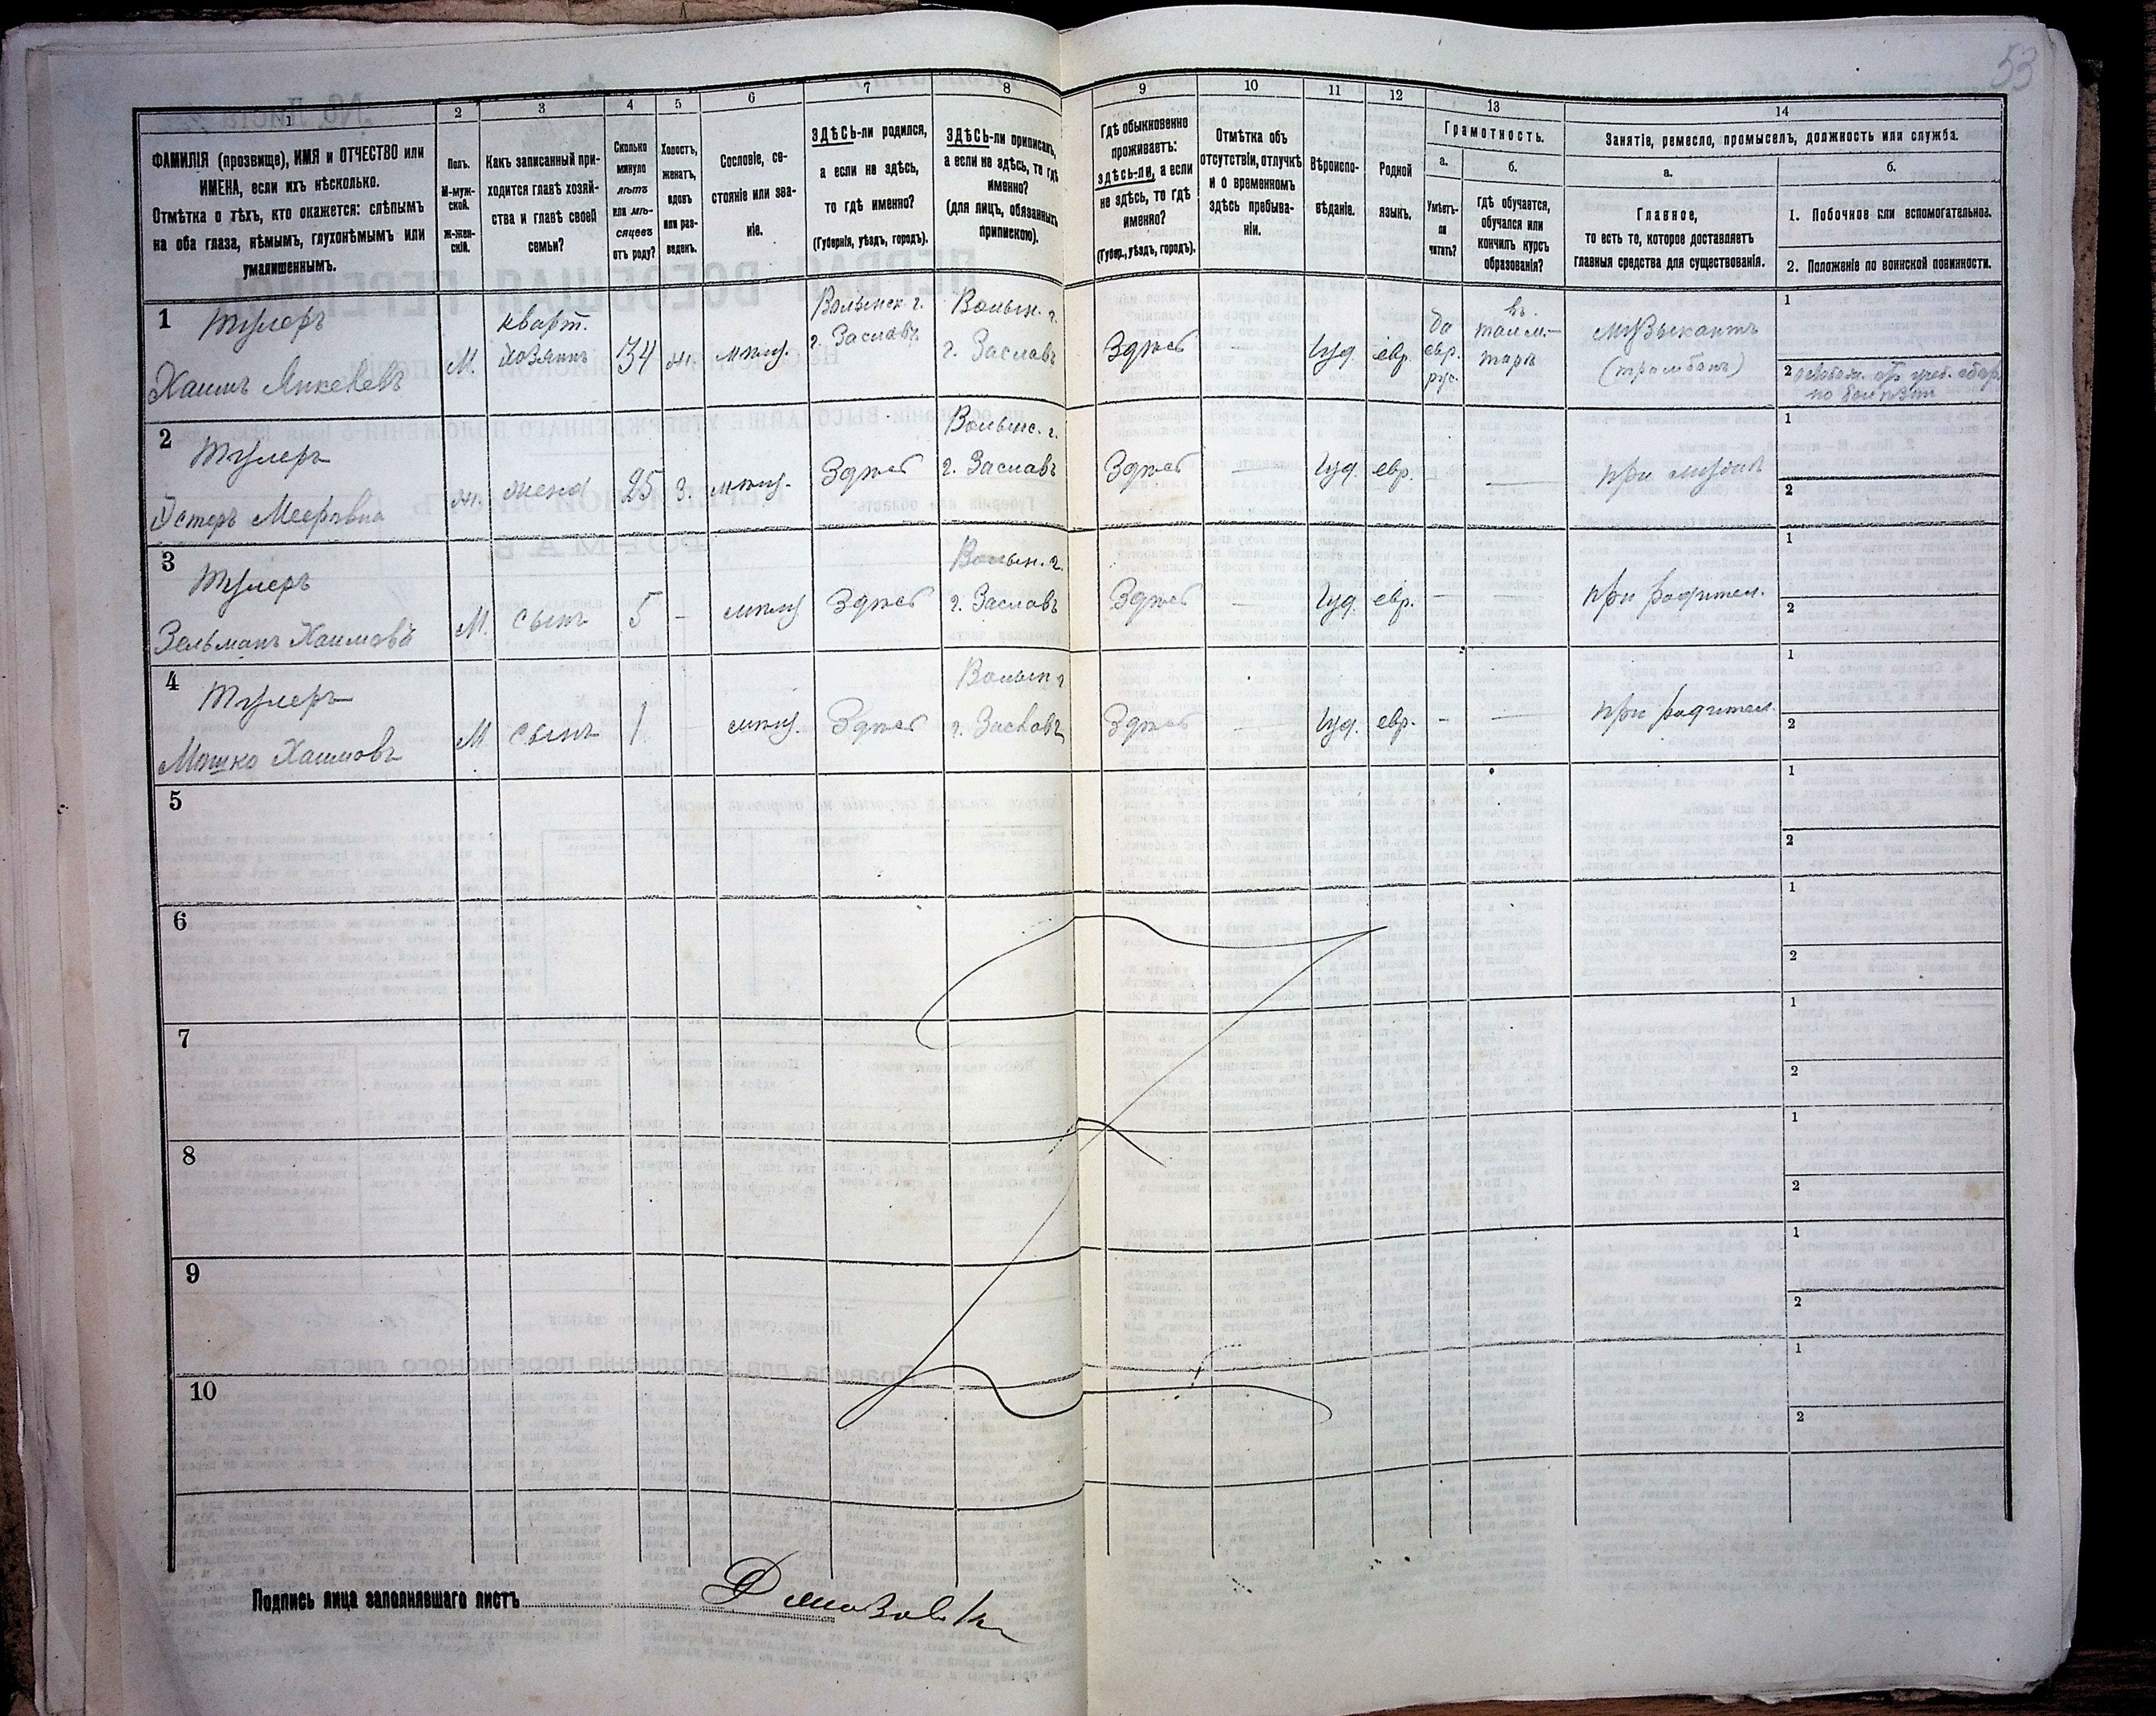 53
1
2
3
4
5
6
7
8
9
10
11
12
13
14
ФАМИЛІЯ (прозвище), ИМЯ и ОТЧЕСТВО или
ИМЕНА, если ихъ нѣсколько.
Отмѣтка о тѣхъ, кто окажется: слѣпымъ
на оба глаза, нѣмымъ, глухонѣмымъ или
умалишеннымъ.
Полъ.
М-муж-
ской.
Ж-жен-
скій.
Какъ записанный при-
ходится главѣ хозяй-
ства и главѣ своей
семьи?
Сколько
минуло
лѣтъ
или мѣ-
сяцевъ
отъ роду?
Холостъ,
женатъ,
вдовъ
или раз-
веденъ.
Сословіе, со-
стояніе или зва-
ніе.
ЗДѢСЬ-ли родился,
а если не здѣсь,
то гдѣ именно?
(Губернія, уѣздъ, городъ).
ЗДѢСЬ-ли приписанъ,
а если не здѣсь, то гдѣ
именно?
(для лицъ, обязанныхъ
припискою).
Гдѣ обыкновенно
проживаетъ:
здѣсь-ли, а если
не здѣсь, то гдѣ
именно?
(Губер., уѣздъ, городъ).
Отмѣтка объ
отсутствіи, отлучкѣ
и о временномъ
здѣсь пребыва-
ніи.
Вѣроиспо-
вѣданіе.
Родной
языкъ.
Грамотность.
а.
б.
Умѣетъ-
ли
читать?
Гдѣ обучается,
обучался или
кончилъ курсъ
образованія?
Занятіе, ремесло, промыселъ, должность или служба.
а.
б.
Главное,
то есть то, которое доставляетъ
главныя средства для существованія.
1. Побочное или вспомогательное.
2. Положеніе по воинской повинности.
1 Тулеръ
Хаимъ Янкелевъ
М.
кварт.
хозяинъ
34
ж.
мѣщ.
Волынск. г.
г. Заславъ
Волын. г.
г. Заславъ
Здѣсь
—
Іуд.
евр.
да
евр.
рус.
въ
талм-
торѣ
Музыкантъ
(тромбонъ)
1
2
2 Тулеръ
Эстеръ Мееровна
ж.
жена
25
З.
мѣщ.
Здѣсь
Волынс. г.
г. Заславъ
Здѣсь
Іуд.
евр.
—
—
при мужѣ
1
2
3 Тулеръ
Зельманъ Хаимовъ
М.
сынъ
5
—
мѣщ
Здѣсь
Волын. г.
г. Заславъ
Здѣсь
—
Іуд.
евр.
—
—
при родител.
1
2
4 Тулеръ
Мошко Хаимовъ
М
сынъ
1
—
мѣщ.
Здѣсь
Волын г
г. Заславъ
Здѣсь
—
Іуд.
евр.
—
—
при родител.
1
2
5
1
2
6
1
2
7
1
2
8
1
2
9
1
2
10
1
2
Подпись лица заполнявшаго листъ